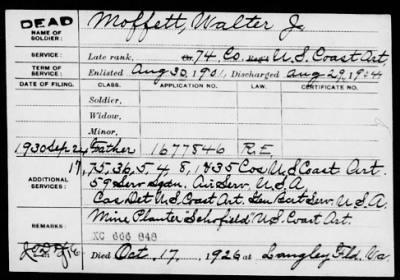 DEAD
NAME OF SOLDIER: Moffett, Walter J.
SERVICE: Late rank, 74 Co. U.S. Coast Art.
TERM OF SERVICE: Enlisted Aug 30, 1901, Discharged Aug 29, 1904
DATE OF FILING. CLASS. APPLICATION NO. LAW. CERTIFICATE NO.
Soldier,
Widow,
Minor,
1930 Sep. 24 Father 1677846 R.E.
ADDITIONAL SERVICES: 17, 75, 36, 5, 4, 8, 1 & 35 Cos U S Coast Art.
59 Serv Sqdn, Air Serv. U.S.A.
Cas Det U.S. Coast Art. Serv. U.S.A.
REMARKS: Mine Planter Schofield U.S. Coast Art.
XC 666 848
Died Oct. 17, 1926 at Langley Fld. Va.